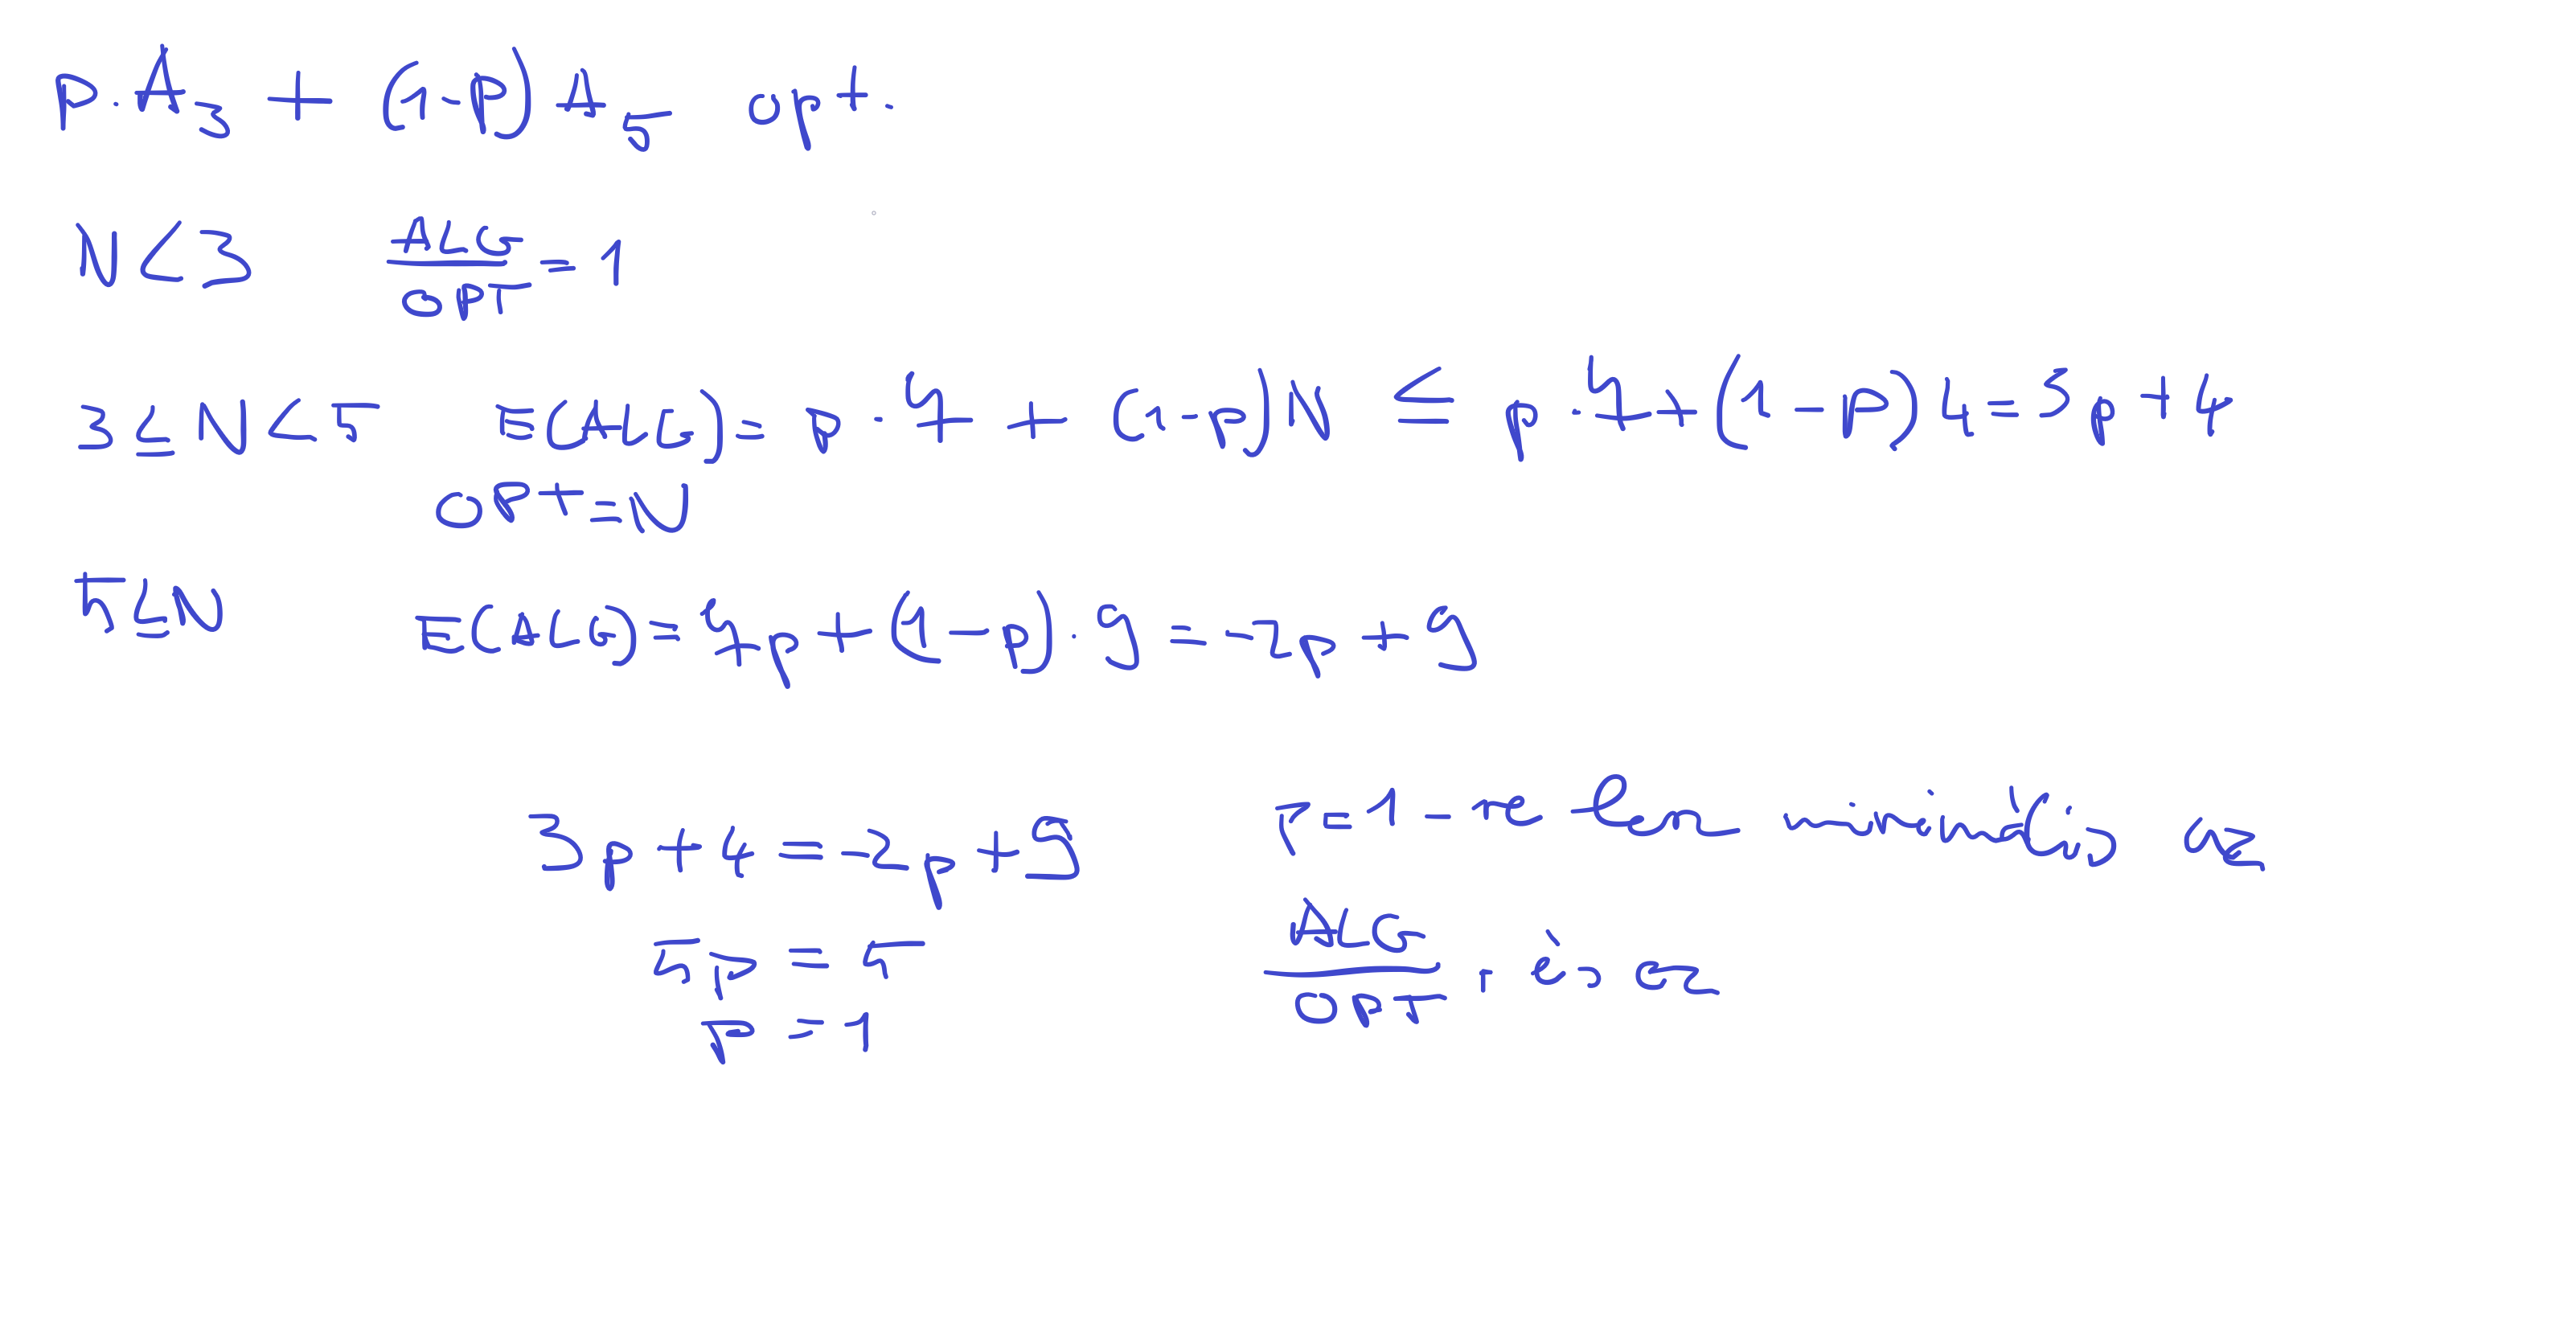 p · A₃ + (1-p) A₅ opt.
N < 3 ALG/OPT = 1
3 ≤ N < 5 E(ALG) = p · 7 + (1-p) N ≤ p · 7 + (1-p) 4 = 3p + 4
OPT = N
5 ≤ N E(ALG) = 7p + (1-p) · 9 = -2p + 9
3p + 4 = -2p + 9
5p = 5
p = 1
P = 1 - re lesz minimális az
ALG/OPT, és az